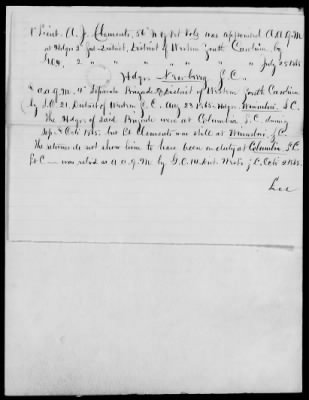 1" Lieut. A. J. Clements, 56" N.Y. Vet Vols was appointed A.A.Q.M.
at Hdqrs 2" Sub-District, District of Western South Carolina by
G.O. 2. " " " " " " July 25 1865
Hdqr. Newberry S.C.
" a.a.q.m. 4" Separate Brigade District of Western South Carolina
by S.O. 21, District of Western S.C. Aug 23 1865. Hdqrs. Winnsboro, S.C.
The Hdqrs. of said Brigade were at Columbia S.C. during
Sep. & Oct. 1865, but Lt. Clements was still at Winnsboro, S.C.
The returns do not show him to have been on duty at Columbia S.C.
S.C. — was relvd as a.a.q.m. by G.O. 14 Dist. Westn S.C. Oct. 2 1865.
Lee